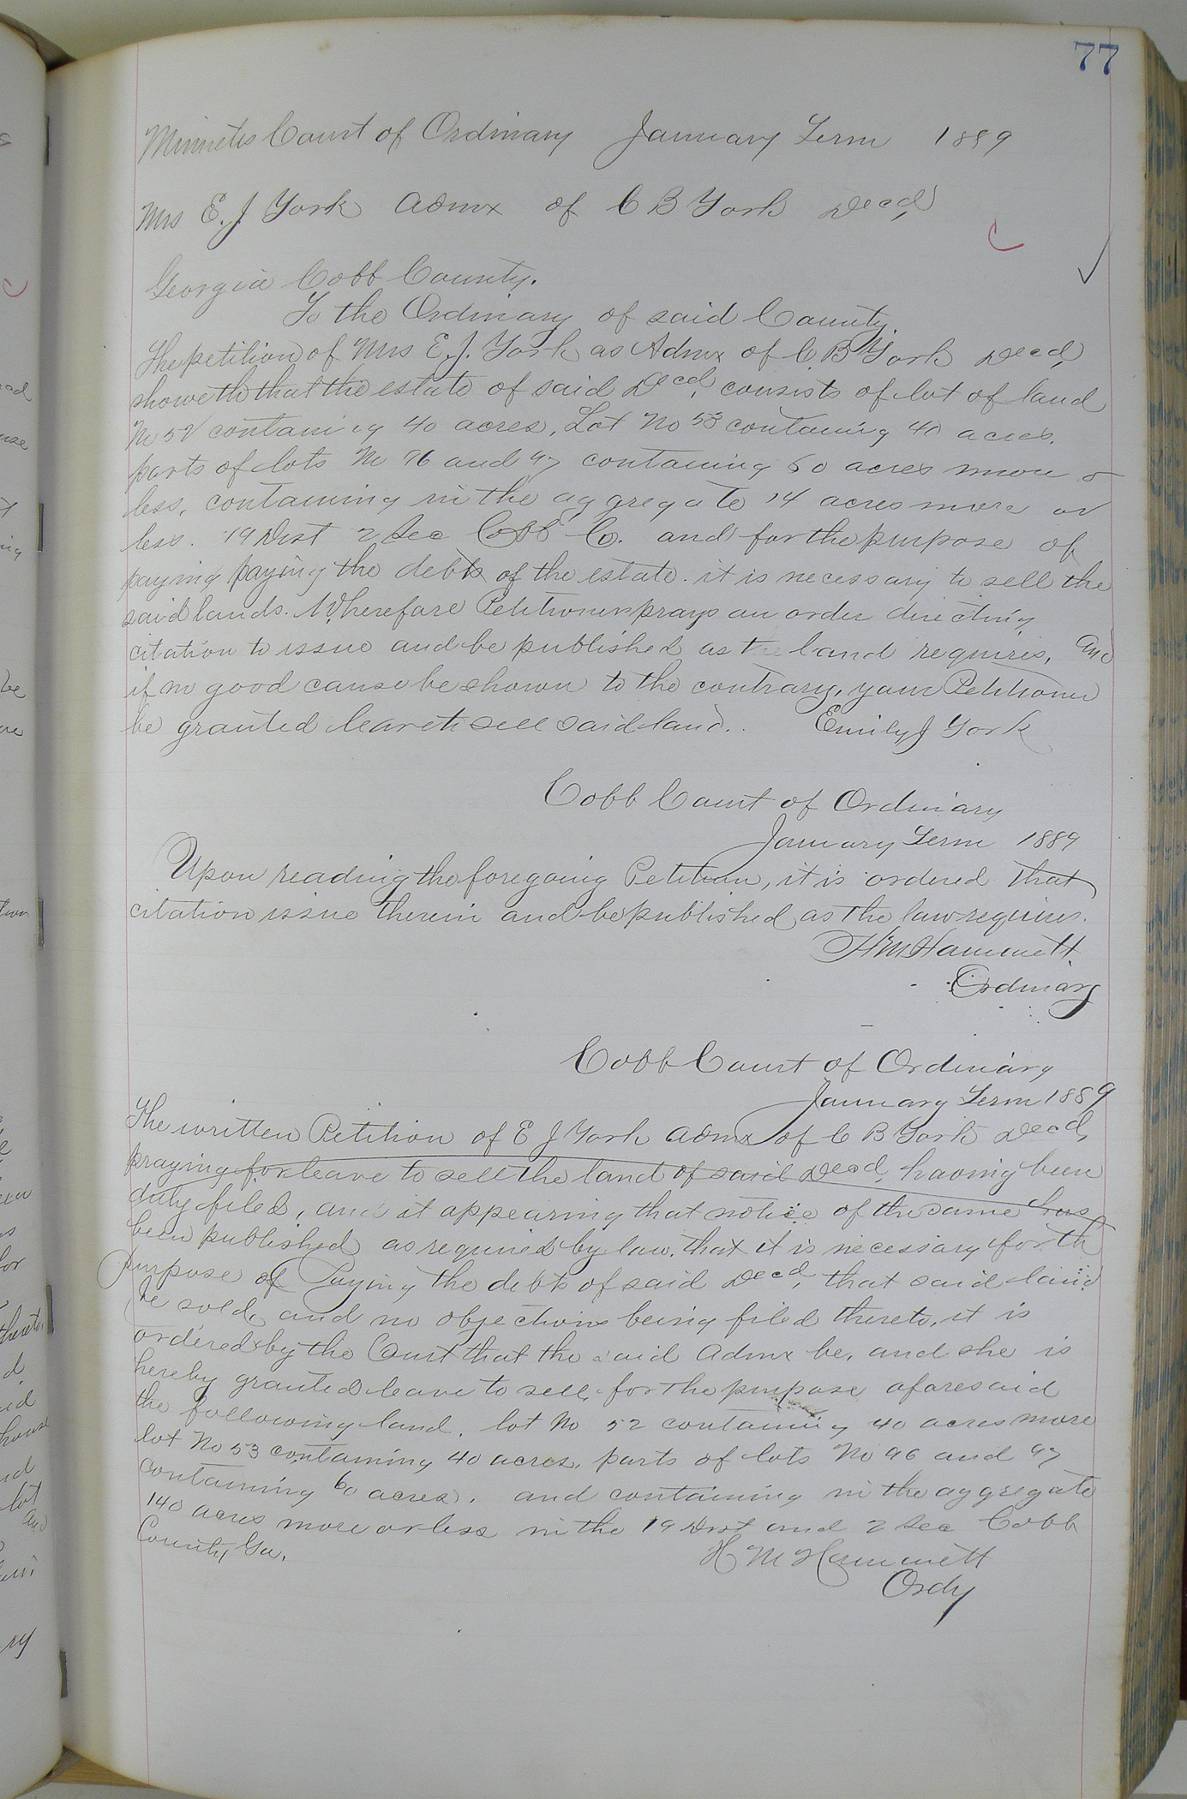 77
Minnets Court of Ordinary January Term 1889
Mrs E. J. York Admx of C B York Decd,
Georgia Cobb County.
To the Ordinary of said County.
The petition of Mrs E. J. York as Admx of C. B York Decd,
showeth that the estate of said Decd, consists of lot of land
No 52 containing 40 acres, Lot No 53 containing 40 acres.
parts of lots No 96 and 97 containing 60 acres more or
less, containing in the aggregate 14 acres more or
less. 19 Dist 2 Sec Cobb Co. and for the purpose of
paying paying the debts of the estate. it is necessary to sell the
said lands. Wherefore Petitioner prays an order directing
citation to issue and be published as the land requires, and
if no good cause be shown to the contrary, your Petitioner
be granted leave to sell said land. Emily J York
Cobb Court of Ordinary
January Term 1889
Upon reading the foregoing Petition, it is ordered that
citation issue therein and be published as the law requires.
H M Hammett
Ordinary
Cobb Court of Ordinary
January Term 1889
The written Petition of E J York Admx of C B York Decd,
praying for leave to sell the land of said Decd, having been
duly filed, and it appearing that notice of the same has
been published as required by law, that it is necessary for th
purpose of Paying the debts of said Decd, that said land
be sold, and no objections being filed thereto, it is
ordered by the Court that the said Admx be, and she is
hereby granted leave to sell, for the purpose aforesaid
the following land, lot No 52 containing 40 acres more
lot No 53 containing 40 acres, parts of lots No 96 and 97
containing 60 acres, and containing in the aggregate
140 acres more or less in the 19 Dist and 2 Sec Cobb
County Ga.
H M Hammett
Ordy